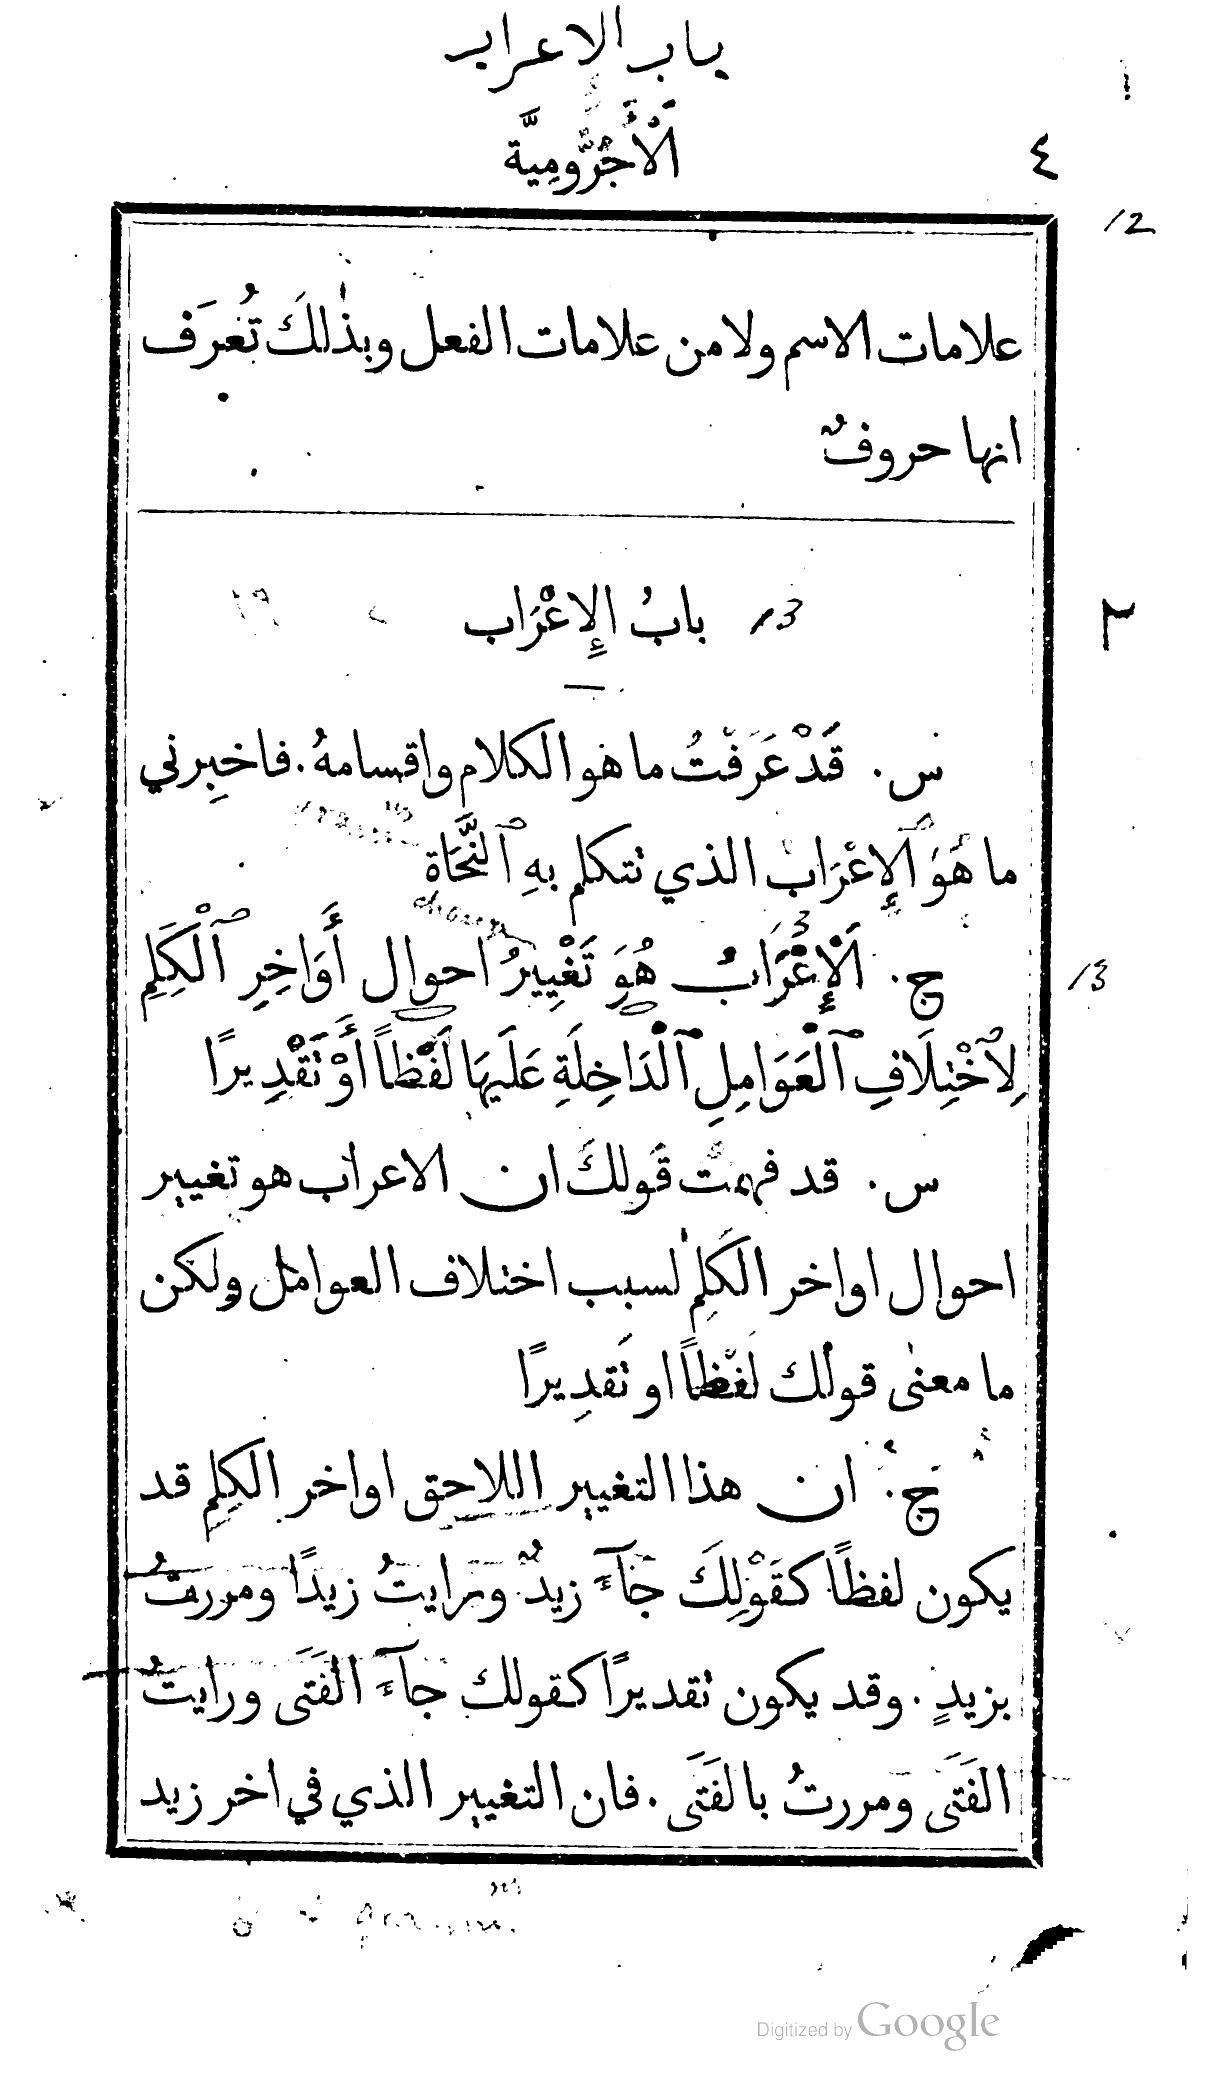 باب الاعراب
اَلْأَجُرُّومِيَّة
٤
12
علامات الاسم ولا من علامات الفعل وبذٰلكَ تُعرَف
انها حروفٌ
بابُ الإِعْرَاب
13
٢
س. قَدْ عَرَفْتُ ما هو الكلام واقسامهُ. فاخبِرني
ما هُوَ ٱلإِعْرَاب الذي تتكلم بهِ ٱلنَّحَاةِ
ج. اَلْإِعْرَابُ هُوَ تَغْيِيرُ احوال أَوَاخِرِ ٱلْكَلِمِ
13
لِٱخْتِلَافِ ٱلْعَوَامِلِ ٱلْدَاخِلَةِ عَلَيهَا لَفْظاً أَوْ تَقْدِيرًا
س. قد فهمت قَولكَ ان الاعراب هو تغيير
احوال اواخر الكَلِم لسبب اختلاف العوامل ولكن
ما معنى قولك لفظاً او تَقدِيرًا
ج. ان هذا التغيير اللاحق اواخر الكلِم قد
يكون لفظاً كقَوْلِكَ جَآءَ زيدٌ ورايتُ زيدًا ومررتُ
بزيدٍ. وقد يكون تقديرًا كقولك جآءَ الفَتَى ورايتُ
الفَتَى ومررتُ بالفَتَى. فان التغيير الذي في اخر زيد
Digitized by Google